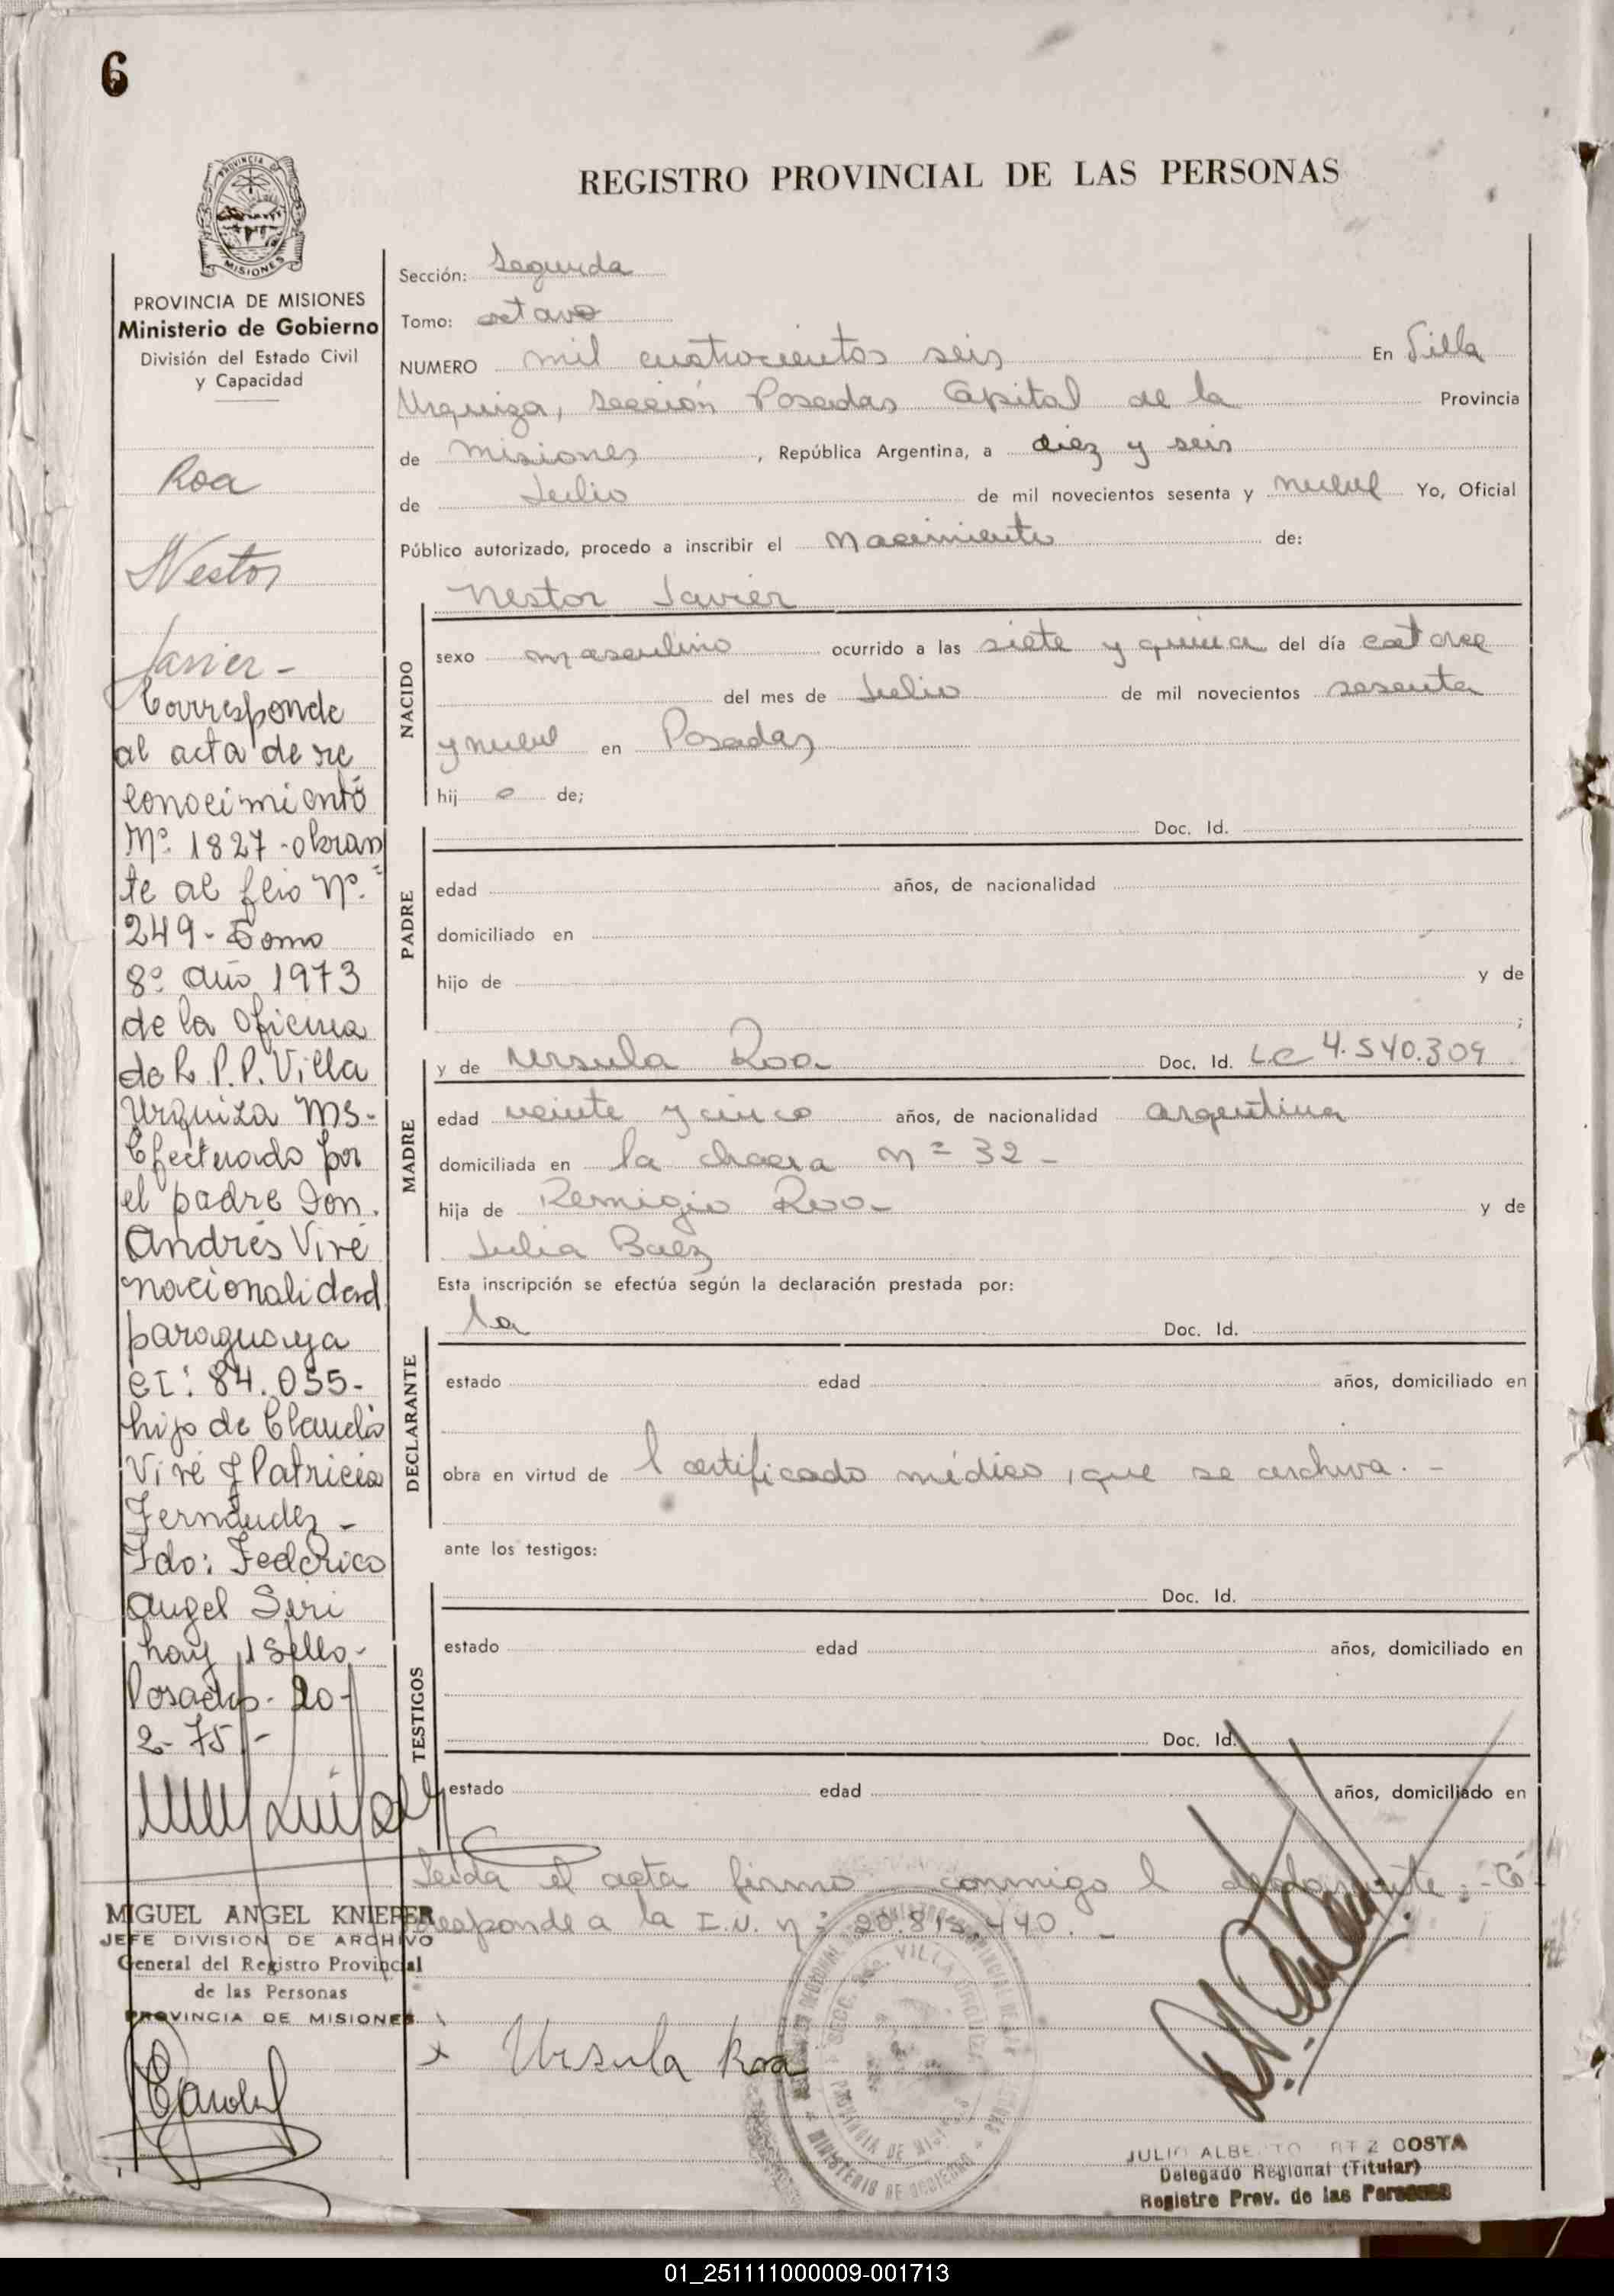 6
PROVINCIA DE
MISIONES
REGISTRO PROVINCIAL DE LAS PERSONAS
PROVINCIA DE MISIONES
Ministerio de Gobierno
División del Estado Civil
y Capacidad
Roa
Nestor
Javier -
Corresponde
al acta de re
conocimiento
Nº 1827 - obran
te al flio Nº
249 - Tomo
8º año 1973
de la Oficina
de R. P. P. Villa
Urquiza Ms-
Efectuado por
el padre Don.
Andrés Viré
nacionalidad
paraguaya
CI: 84.055-
hijo de Claudio
Viré y Patricia
Fernández -
Fdo: Federico
Angel Siri
hay 1 sello -
Posadas - 20 -
2 - 75 -
MIGUEL ANGEL KNIEPER
JEFE DIVISION DE ARCHIVO
General del Registro Provincial
de las Personas
PROVINCIA DE MISIONES
Sección: Segunda
Tomo: octavo
NUMERO mil cuatrocientos seis En Villa
Urquiza, Sección Posadas Capital de la Provincia
de Misiones, República Argentina, a diez y seis
de Julio de mil novecientos sesenta y nueve Yo, Oficial
Público autorizado, procedo a inscribir el Nacimiento de:
Nestor Javier
NACIDO
sexo masculino ocurrido a las siete y quince del día catorce
del mes de Julio de mil novecientos sesenta
y nueve en Posadas
hij o de;
PADRE
Doc. Id.
edad años, de nacionalidad
domiciliado en
hijo de y de
;
MADRE
y de Ursula Roa Doc. Id. LC 4.540.309
edad veinte y cinco años, de nacionalidad argentina
domiciliada en la chacra Nº 32 -
hija de Remigio Roa y de
Julia Baez
Esta inscripción se efectúa según la declaración prestada por:
DECLARANTE
la Doc. Id.
estado edad años, domiciliado en
obra en virtud de l certificado médico, que se archiva. -
ante los testigos:
TESTIGOS
Doc. Id.
estado edad años, domiciliado en
Doc. Id.
estado edad años, domiciliado en
Leida el acta firma conmigo l declarante: - Co
rresponde a la I.U. nº 20.813.440. -
x Ursula Roa
SECC. VILLA URQUIZA
PROVINCIA DE MISIONES
MINISTERIO DE GOBIERNO
JULIO ALBERTO COSTA
Delegado Regional (Titular)
Registro Prov. de las Personas
01_251111000009-001713